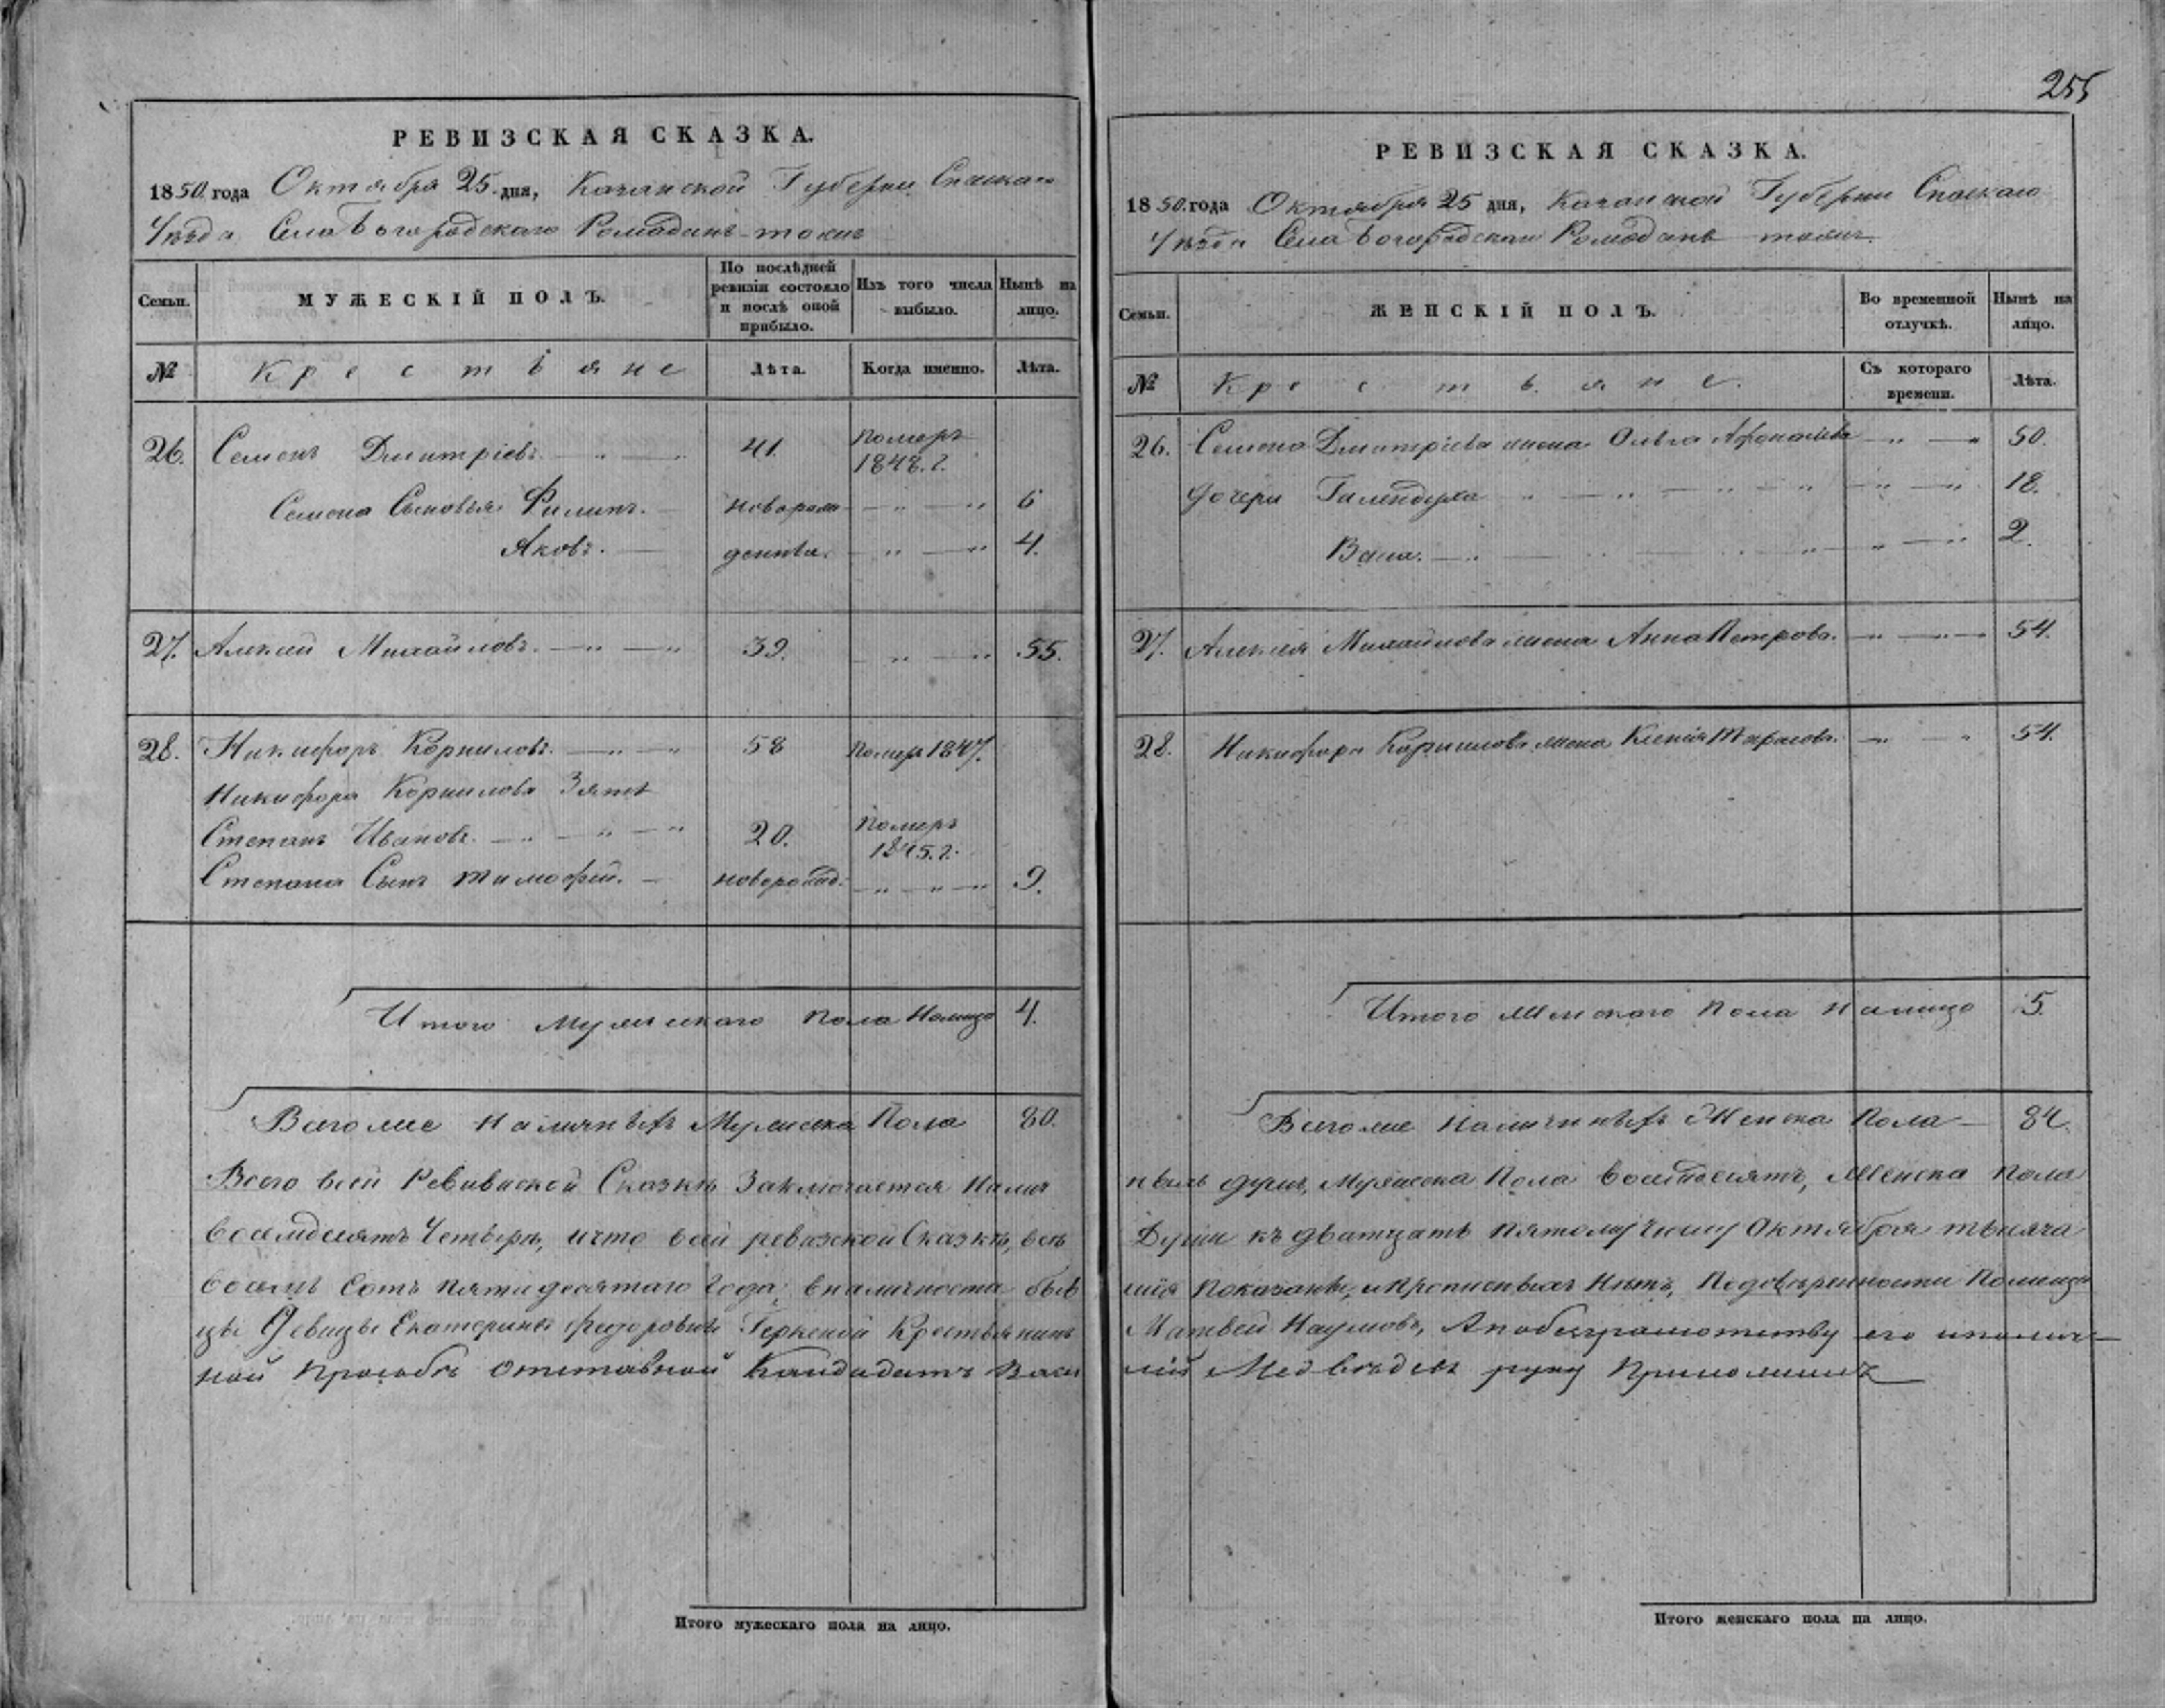 255
РЕВИЗСКАЯ СКАЗКА.
1850 года Октября 25 дня, Казанской Губерніи Спаскаго
Уѣзда Села Богородскаго Ромодань тожъ
Семьи.
МУЖЕСКІЙ ПОЛЪ.
По послѣдней ревизіи состояло и послѣ оной прибыло.
Изъ того числа выбыло.
Нынѣ на лицо.
№
Крестьяне
Лѣта.
Когда именно.
Лѣта.
26. Семенъ Дмитріевъ. — „ — „ 41. Померъ 1848. г.
Семена Сыновья Филипъ. — новорож — „ — „ 6
Яковъ. — денные. — „ — „ 4.
27. Алексей Михайловъ. — „ — „ 39. — „ — „ 55.
28. Никифоръ Корниловъ. — „ — „ 58 Померъ 1847.
Никифора Корнилова Зять
Степанъ Ивановъ. — „ — „ — „ 20. Померъ 1845. г.
Степана Сынъ Тимофей. — новорожд. — „ — „ — „ 9.
Итого Мужескаго Пола Налицо 4.
Всего же Наличныхъ Мужеска Пола 80.
Всего всей Ревизской Сказкѣ Заключается Налич
восемдесятъ Четыри, ичто всей ревизской Сказкѣ, всѣ
восемь Сотъ Пятидесятаго Года, вналичности быв
цы Девицы Екатерины Федоровны Геркеной Крестьянинъ
ной прозьбѣ отставной Кандидатъ Васи
Итого мужескаго пола на лицо.
РЕВИЗСКАЯ СКАЗКА.
1850 года Октября 25 дня, Казанской Губерніи Спаскаго
Уѣзда Села Богородскаго Ромодань тожъ.
Семьи.
ЖЕНСКІЙ ПОЛЪ.
Во временной отлучкѣ.
Нынѣ на лицо.
№
Крестьяне.
Съ котораго времени.
Лѣта.
26. Семена Дмитріева жена Ольга Афонасьева — „ — „ 50.
Дочери — „ — „ 18.
— „ — „ 2.
27. Алексея Михайлова жена Анна Петрова. — „ — „ — 54.
28. Никифора Корнилова жена Ксенія Тарасова. — „ — „ 54.
Итого Женскаго Пола Налицо 5.
Всего же Наличныхъ Женска Пола — 84.
ныхъ душъ, Мужеска Пола восемдесятъ, Женска Пола
Души къ дватцать пятому Числу Октября тысяча
шія Показаны, иПрописныхъ Нѣтъ, Подовѣренности Помещи
Матвей Наумовъ, Апобезграмотству его иполич—
лій Медведевъ руку Приложилъ
Итого женскаго пола на лицо.